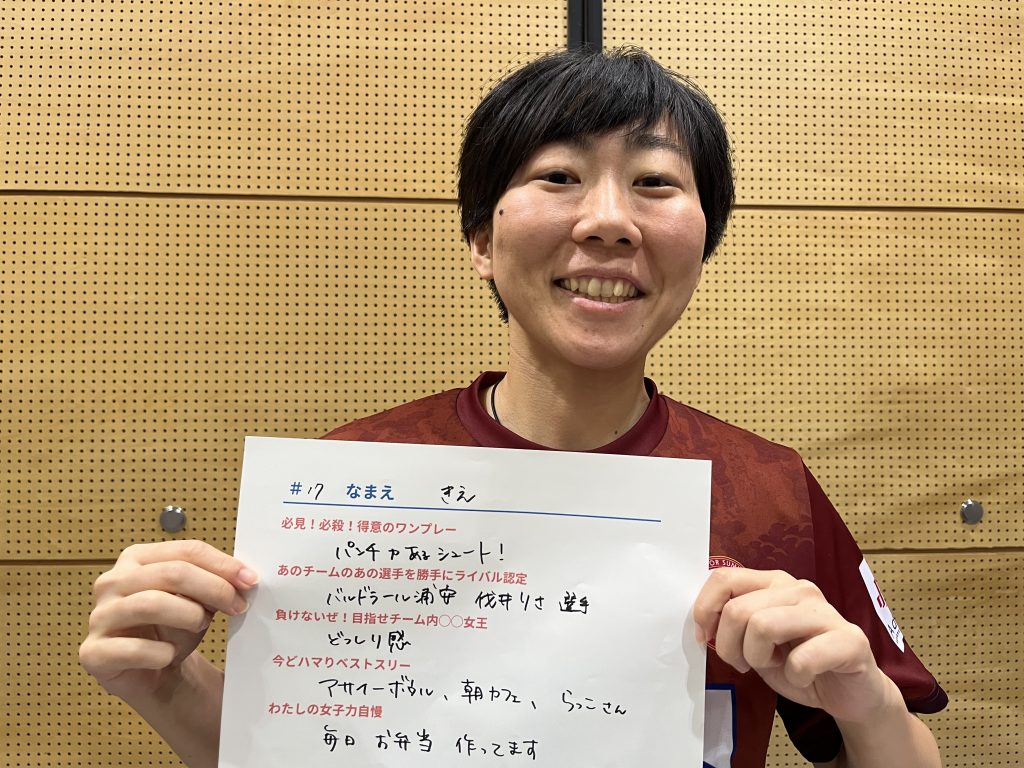 #17 なまえ きえ
必見！必殺！得意のワンプレー
パンチ力あるシュート！
あのチームのあの選手を勝手にライバル認定
バルドラール浦安 伐井りさ 選手
負けないぜ！目指せチーム内〇〇女王
どっしり感
今どハマりベストスリー
アサイーボウル、朝カフェ、らっこさん
わたしの女子力自慢
毎日 お弁当 作ってます